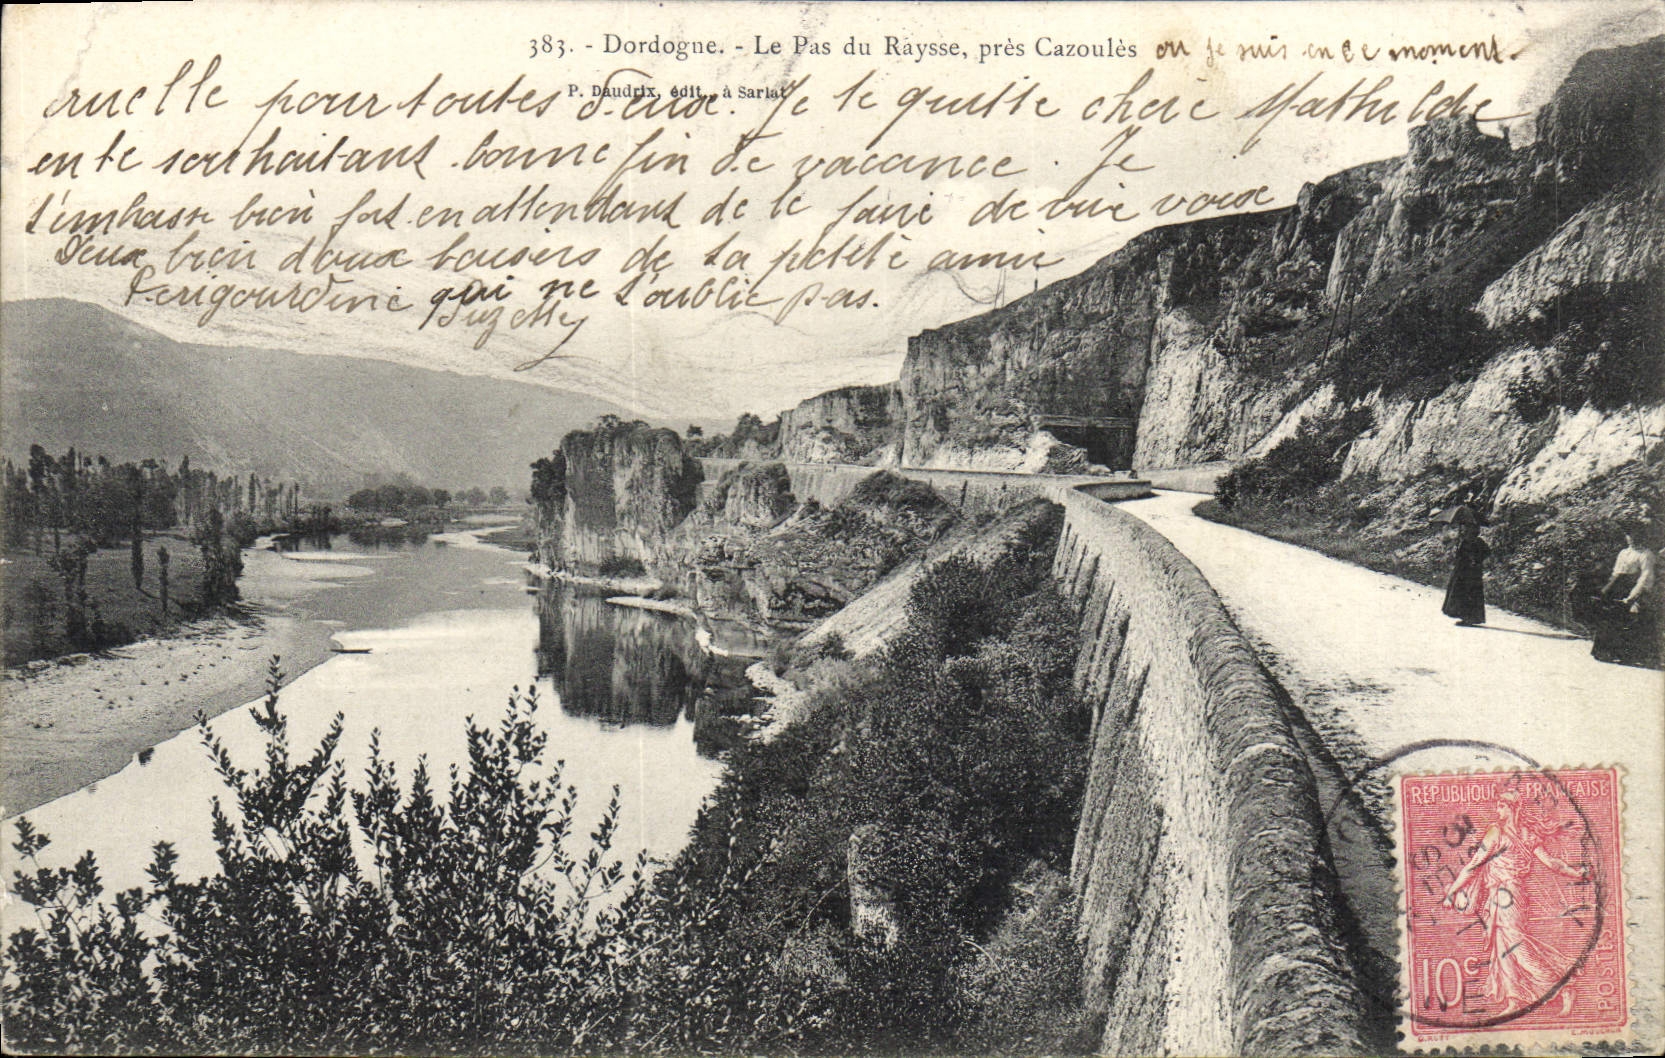 383. - Dordogne. - Le Pas du Raysse, près Cazoulès ou je suis en ce moment.
P. Daudrix, édit., à Sarlat
cruelle pour toutes deux. Je te quitte chère Mathilde
en te souhaitant bonne fin de vacance. Je
t'embasse bien fort en attendant de le faire de vive voix
Deux bien doux baisers de ta petite amie
Perigourdine qui ne t'oublie pas.
Suzette
REPUBLIQUE FRANÇAISE
10c
POSTES